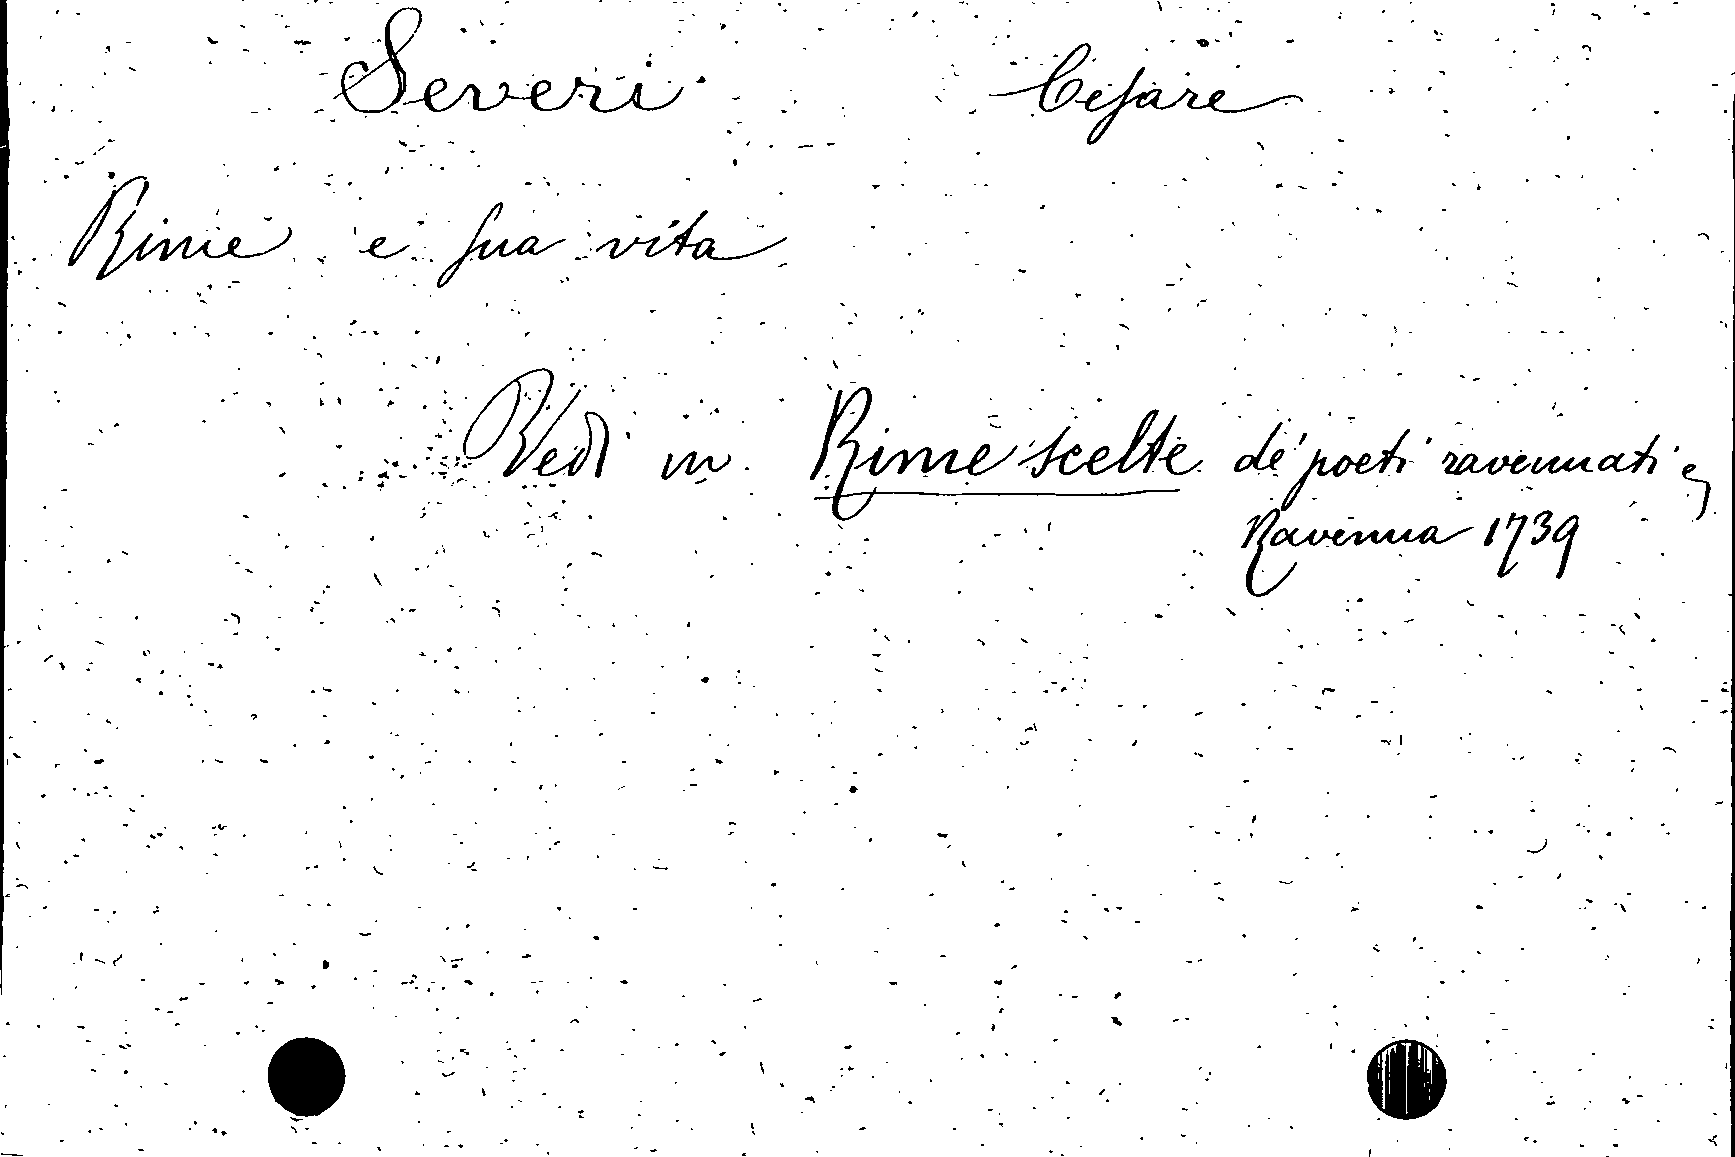 Severi Cesare
Rime e sua vita
Vedi in Rime scelte de' poeti ravennati
Ravenna 1739